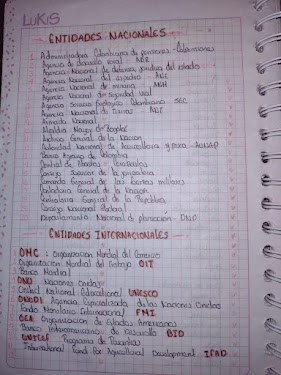 LUKIS
ENTIDADES NACIONALES
Administradora Colombiana de pensiones - Colpensiones
Agencia de desarrollo rural - ADR
Agencia Nacional de defensa jurídica del estado
Agencia Nacional del espectro - ANE
Agencia Nacional de minería - ANM
Agencia Nacional de seguridad vial
Agencia Servicio Geológico Colombiano SGC
Agencia Nacional de Tierras - ANT
Armada Nacional
Alcaldía Mayor de Bogotá
Archivo General de la Nación
Autoridad Nacional de Acuicultura y pesca - AUNAP
Banco Agrario de Colombia
Central de
Consejo Superior de la judicatura
Comando General de las fuerzas militares
Contaduría General de la Nación
Contraloría General de la República
Consejo Nacional Electoral
Departamento Nacional de planeación - DNP
ENTIDADES INTERNACIONALES
OMC : Organización Mundial del Comercio
Organización Mundial del Trabajo OIT
Banco Mundial
ONU Naciones Unidas
United National Educational UNESCO
ONUDI Agencia Especializada de las Naciones Unidas
Fondo Monetario Internacional FMI
OEA Organización de Estados Americanos
Banco Interamericano de Desarrollo BID
UNICEF Programa de
International Fund For Agricultural Development IFAD